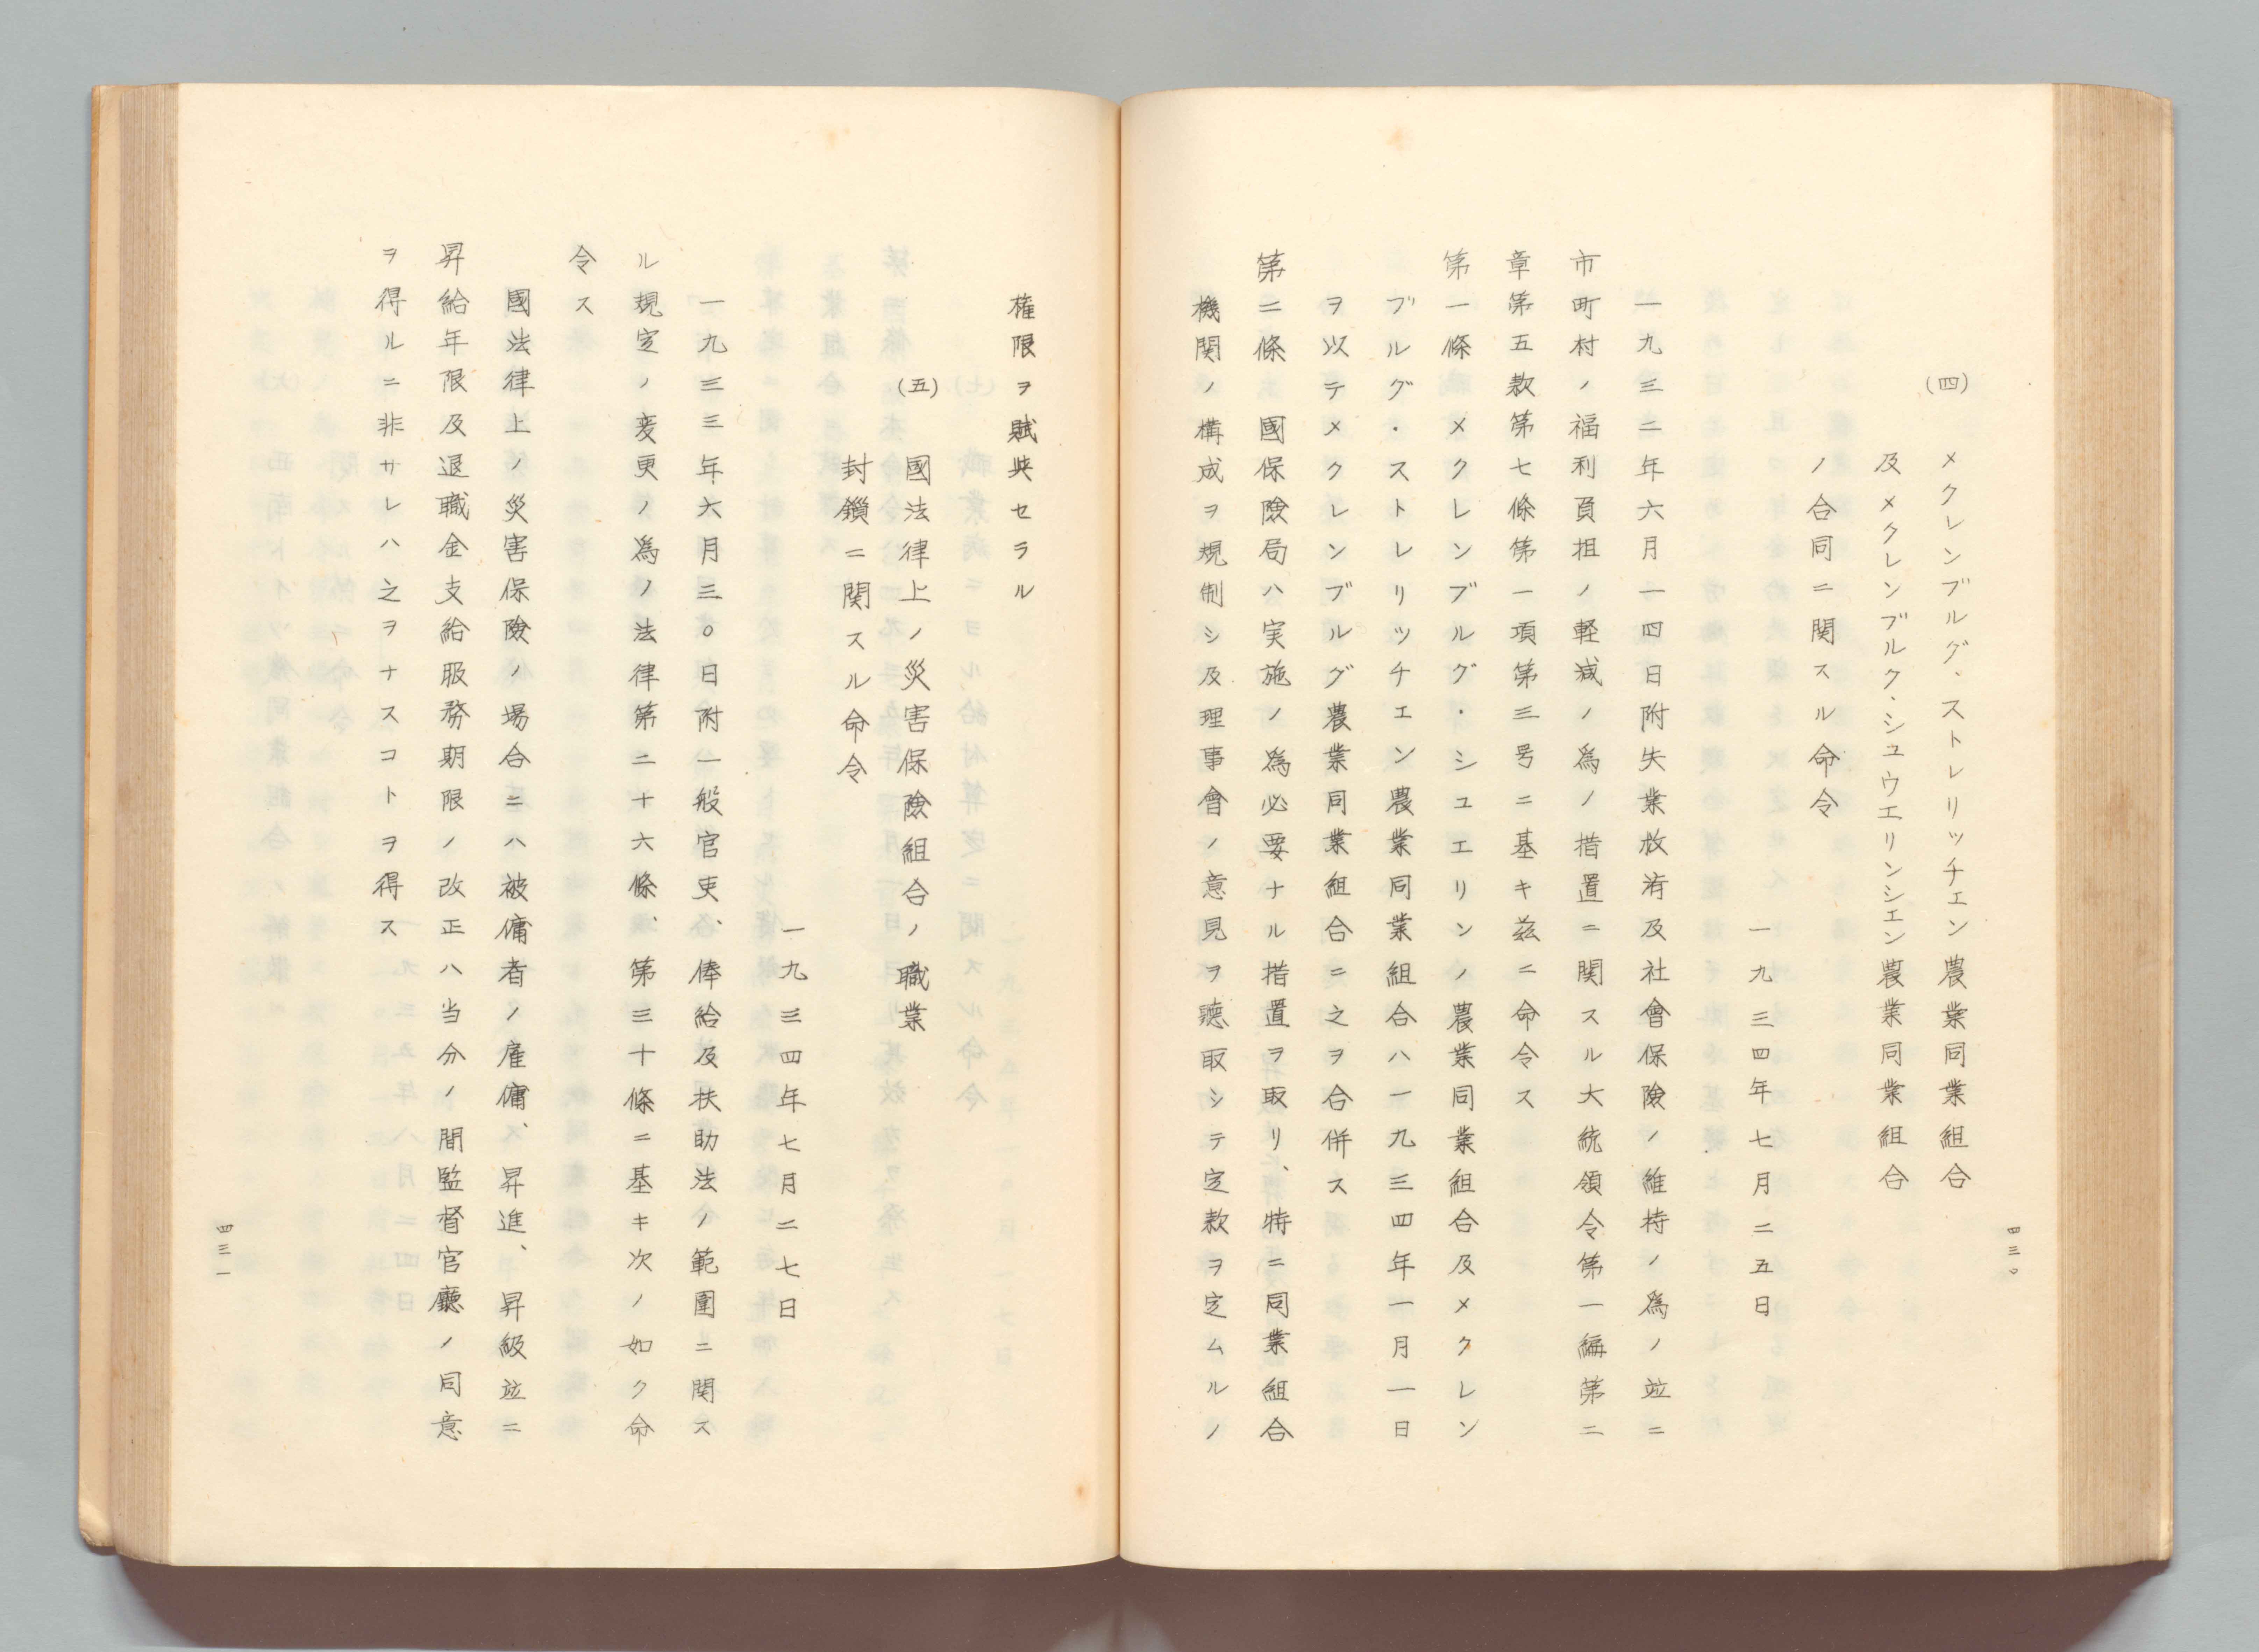 (四)　メクレンブルグ、ストレリッチェン農業同業組合
及メクレンブルク、シュウエリンシェン農業同業組合
ノ合同ニ関スル命令
一九三四年七月二五日
一九三二年六月一四日附失業救済及社會保險ノ維持ノ爲ノ竝ニ
市町村ノ福利負担ノ軽減ノ爲ノ措置ニ関スル大統領令第一編第二
章第五款第七條第一項第三号ニ基キ茲ニ命令ス
第一條　メクレンブルグ・シユエリンノ農業同業組合及メクレン
ブルグ・ストレリッチエン農業同業組合ハ一九三四年一月一日
ヲ以テメクレンブルグ農業同業組合ニ之ヲ合併ス
第二條　國保險局ハ実施ノ爲必要ナル措置ヲ取リ、特ニ同業組合
機関ノ構成ヲ規制シ及理事會ノ意見ヲ聽取シテ定款ヲ定ムルノ
四三〇
権限ヲ賦與セラル
(五)　國法律上ノ災害保險組合ノ職業
封鎖ニ関スル命令
一九三四年七月二七日
一九三三年六月三〇日附一般官吏、俸給及扶助法ノ範圍ニ関ス
ル規定ノ変更ノ爲ノ法律第二十六條、第三十條ニ基キ次ノ如ク命
令ス
國法律上ノ災害保險ノ場合ニハ被傭者ノ雇傭、昇進、昇級竝ニ
昇給年限及退職金支給服務期限ノ改正ハ当分ノ間監督官廳ノ同意
ヲ得ルニ非サレハ之ヲナスコトヲ得ス
四三一